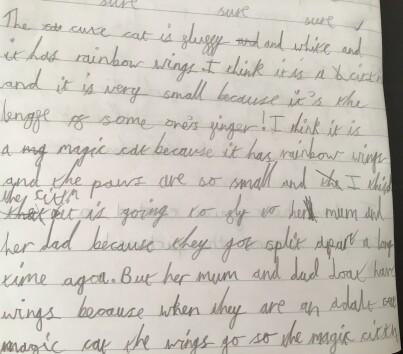 sure sure sure
The cute cat is fluffy and and white and
it has rainbow wings. I think it is a
and it is very small because it's the
lengge of some one's finger! I think it is
a magic cat because it has rainbow wings
and the paws are so small and the I think
they
is going to fly to her mum and
her dad because they got split apart a long
time agoa. But her mum and dad dont have
wings because when they are an adalt
magic cat the wings go so the magic